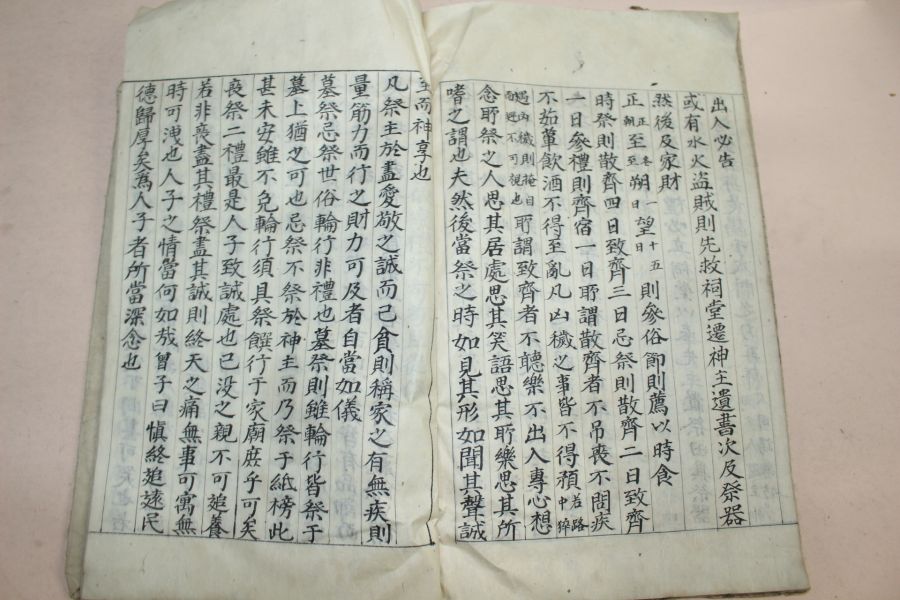 出入必告
或有水火盜賊則先救祠堂遷神主遺書次及祭器
然後及家財
正正朝至冬至朔一日望十五日則參俗節則薦以時食
時祭則散齊四日致齊三日忌祭則散齊二日致齊
一日參禮則齊宿一日所謂散齊者不吊喪不問疾
不茹葷飲酒不得至亂凡凶穢之事皆不得預若路中猝
遇凶穢則掩目而避不可視也所謂致齊者不聽樂不出入專心想
念所祭之人思其居處思其笑語思其所樂思其所
嗜之謂也夫然後當祭之時如見其形如聞其聲誠
至而神享也
凡祭主於盡愛敬之誠而已貧則稱家之有無疾則
量筋力而行之財力可及者自當如儀
墓祭忌祭世俗輪行非禮也墓祭則雖輪行皆祭于
墓上猶之可也忌祭不祭於神主而乃祭于紙榜此
甚未安雖不免輪行須具祭饌行于家廟庶乎可矣
喪祭二禮最是人子致誠處也已沒之親不可追養
若非喪盡其禮祭盡其誠則終天之痛無事可寓無
時可洩也人子之情當何如哉曾子曰愼終追遠民
德歸厚矣爲人子者所當深念也